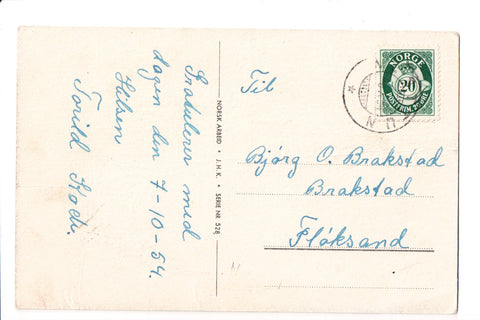 Gratulerer med
dagen den 7-10-54.
Hilsen
Torild Kodi.
NORSK ARBEID • J.H.K. • SERIE NR. 528
Til
Bjørg O. Brakstad
Brakstad
Fløksand
NORGE
20
POSTFRIM.